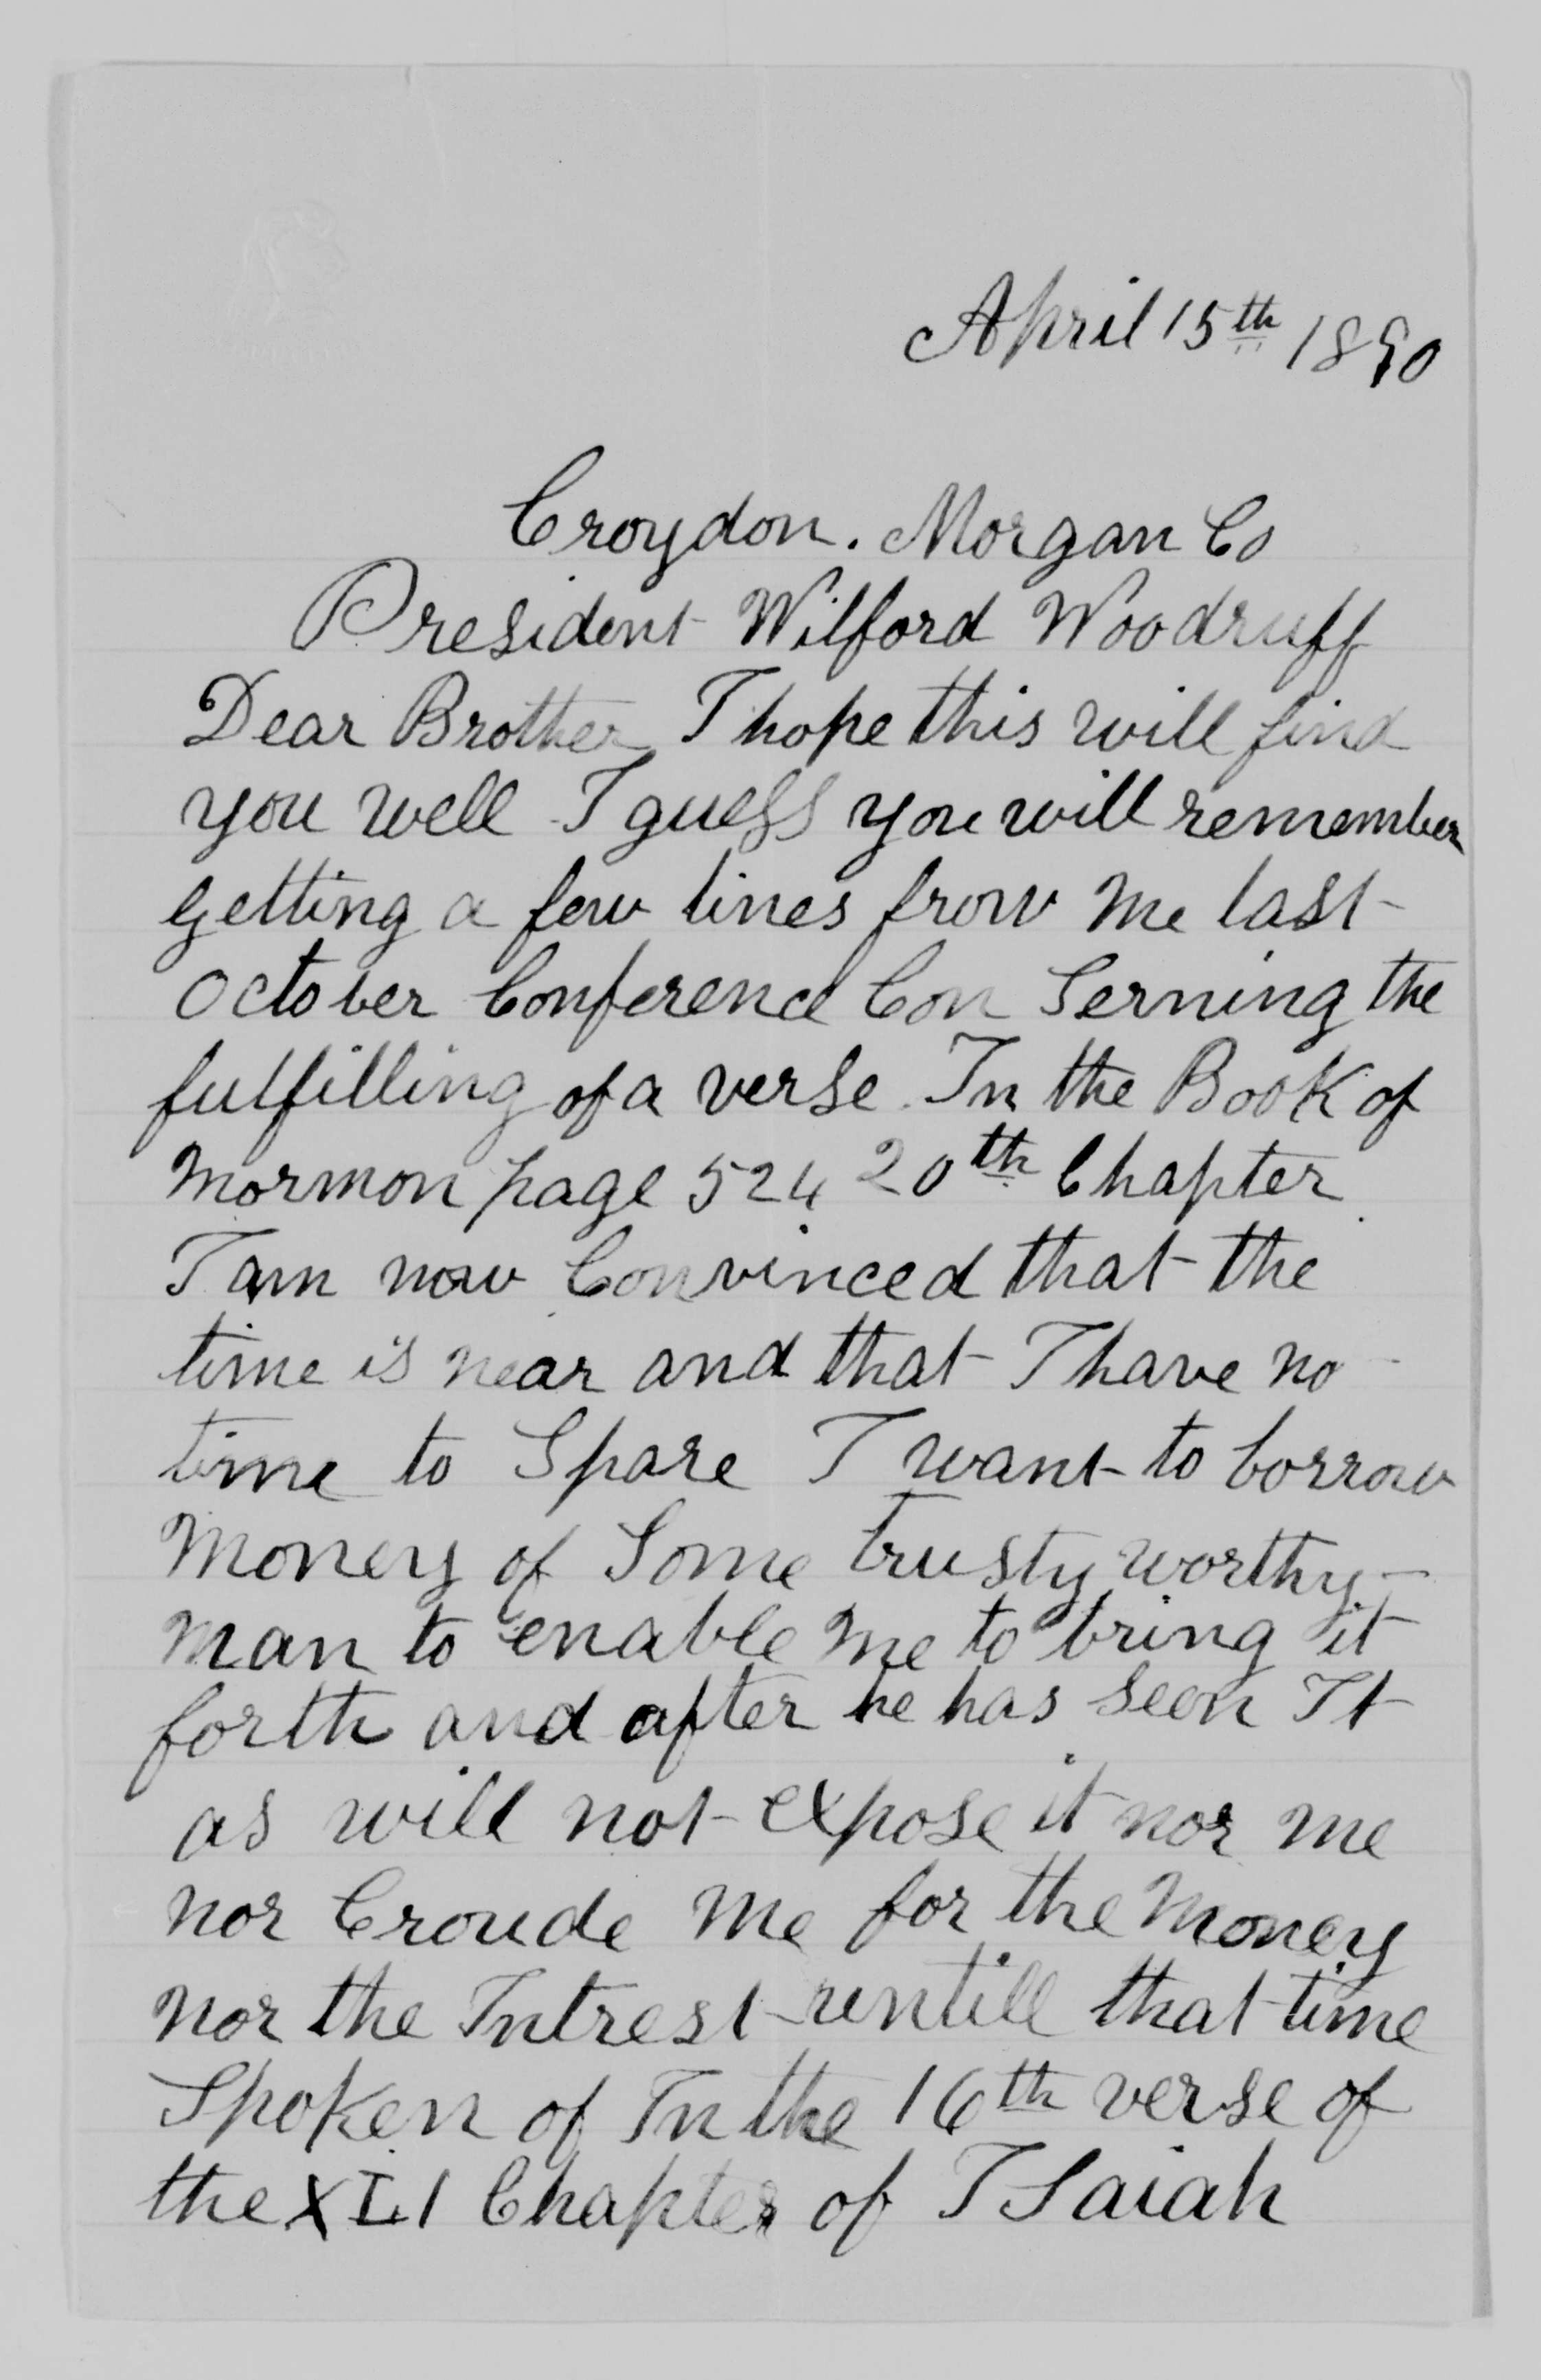 April 15th 1890
Croydon. Morgan Co
President Wilford Woodruff
Dear Brother I hope this will find
you well I guess you will remember
getting a few lines from me last
October Conference Con Serning the
fulfilling of a verse In the Book of
Mormon page 524 20th Chapter
I am now Convinced that the
time is near and that I have no
time to Spare I want to borrow
Money of Some trusty worthy
man to enable me to bring it
forth and after he has seen It
as will not expose it nor me
nor Croude me for the Money
nor the Intrest untill that time
Spoken of In the 16th verse of
the XLI Chapter of ISaiah